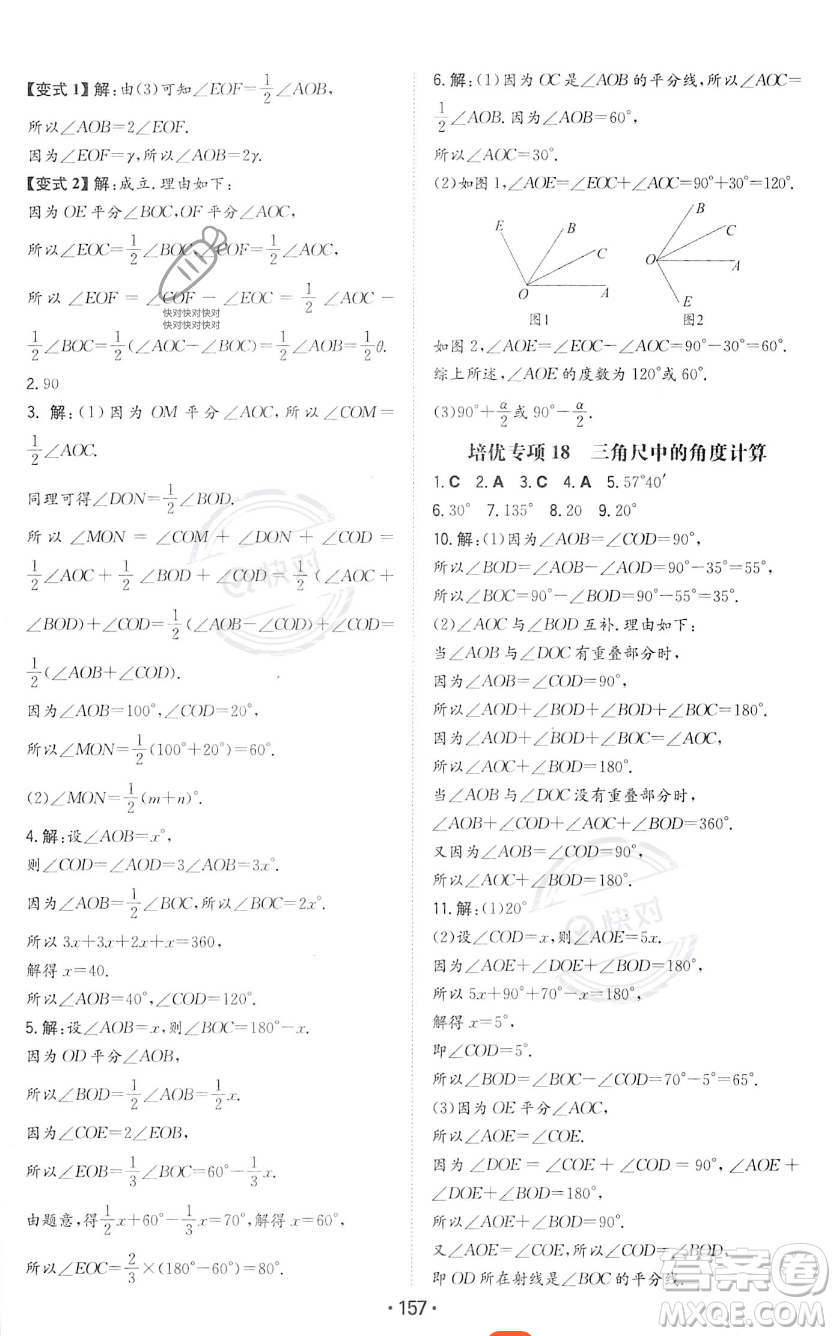 【变式1】解：由(3)可知∠EOF=1/2∠AOB，
所以∠AOB=2∠EOF.
因为∠EOF=γ，所以∠AOB=2γ.
【变式2】解：成立.理由如下：
因为OE平分∠BOC，OF平分∠AOC，
所以∠EOC=1/2∠BOC，∠COF=1/2∠AOC，
所以∠EOF=∠COF-∠EOC=1/2∠AOC-
1/2∠BOC=1/2(∠AOC-∠BOC)=1/2∠AOB=1/2θ.
快对快对快对
快对快对快对
2.90
3.解：(1)因为OM平分∠AOC，所以∠COM=
1/2∠AOC.
同理可得∠DON=1/2∠BOD.
所以∠MON=∠COM+∠DON+∠COD=
1/2∠AOC+1/2∠BOD+∠COD=1/2(∠AOC+
∠BOD)+∠COD=1/2(∠AOB-∠COD)+∠COD=
1/2(∠AOB+∠COD).
因为∠AOB=100°，∠COD=20°，
所以∠MON=1/2(100°+20°)=60°.
(2)∠MON=1/2(m+n)°.
4.解：设∠AOB=x°，
则∠COD=∠AOD=3∠AOB=3x°.
因为∠AOB=1/2∠BOC，所以∠BOC=2x°.
所以3x+3x+2x+x=360，
解得x=40.
所以∠AOB=40°，∠COD=120°.
5.解：设∠AOB=x，则∠BOC=180°-x.
因为OD平分∠AOB，
所以∠BOD=1/2∠AOB=1/2x.
因为∠COE=2∠EOB，
所以∠EOB=1/3∠BOC=60°-1/3x.
由题意，得1/2x+60°-1/3x=70°，解得x=60°，
所以∠EOC=2/3×(180°-60°)=80°.
6.解：(1)因为OC是∠AOB的平分线，所以∠AOC=
1/2∠AOB.因为∠AOB=60°，
所以∠AOC=30°.
(2)如图1，∠AOE=∠EOC+∠AOC=90°+30°=120°.
E B C O A
图1
B C O A E
图2
如图2，∠AOE=∠EOC-∠AOC=90°-30°=60°.
综上所述，∠AOE的度数为120°或60°.
(3)90°+α/2或90°-α/2.
培优专项18 三角尺中的角度计算
1.C 2.A 3.C 4.A 5.57°40′
6.30° 7.135° 8.20 9.20°
10.解：(1)因为∠AOB=∠COD=90°，
所以∠BOD=∠AOB-∠AOD=90°-35°=55°，
所以∠BOC=∠COD-∠BOD=90°-55°=35°.
(2)∠AOC与∠BOD互补.理由如下：
当∠AOB与∠DOC有重叠部分时，
因为∠AOB=∠COD=90°，
所以∠AOD+∠BOD+∠BOD+∠BOC=180°.
因为∠AOD+∠BOD+∠BOC=∠AOC，
所以∠AOC+∠BOD=180°.
当∠AOB与∠DOC没有重叠部分时，
∠AOB+∠COD+∠AOC+∠BOD=360°.
又因为∠AOB=∠COD=90°，
所以∠AOC+∠BOD=180°.
11.解：(1)20°
(2)设∠COD=x，则∠AOE=5x.
因为∠AOE+∠DOE+∠BOD=180°，
所以5x+90°+70°-x=180°，
解得x=5°，
即∠COD=5°.
所以∠BOD=∠BOC-∠COD=70°-5°=65°.
(3)因为OE平分∠AOC，
所以∠AOE=∠COE.
因为∠DOE=∠COE+∠COD=90°，∠AOE+
∠DOE+∠BOD=180°，
所以∠AOE+∠BOD=90°.
又∠AOE=∠COE，所以∠COD=∠BOD，
即OD所在射线是∠BOC的平分线.
·157·
快对
快对
答案卷
MXQE.COM